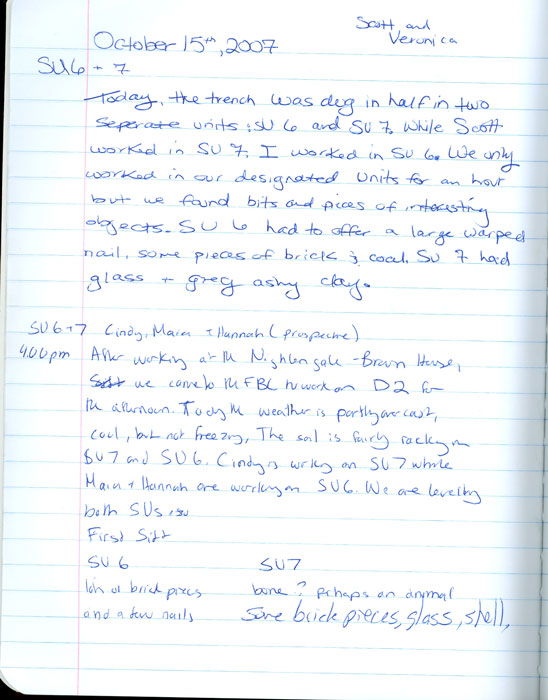 Scott and
Veronica
October 15th, 2007
SU 6 + 7
Today, the trench was dug in half in two
Seperate units: SU 6 and SU 7. While Scott
worked in SU 7, I worked in SU 6. We only
worked in our designated units for an hour
but we found bits and pices of interesting
objects. SU 6 had to offer a large warped
nail, some pieces of bricks & coal. SU 7 had
glass + grey ashy clay.
SU 6+7 Cindy, Maia + Hannah (prospective)
4:00pm After working at the Nightengale-Brown House,
we came to the FBC to work on D2 for
the afternoon. Today the weather is partly overcast,
cool, but not freezing, The soil is fairly rocky in
SU7 and SU6. Cindy is working on SU7 while
Maia + Hannah are working on SU6. We are leveling
both SUs
First Sift
SU 6 SU7
lots of brick pieces bone? perhaps an animal
and a few nails Some brick pieces, glass, shell,